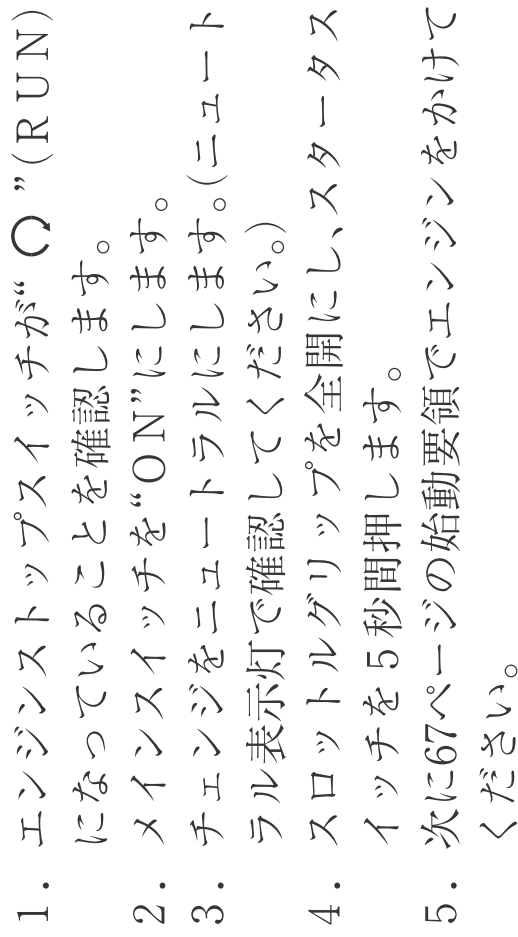 1．エンジンストップスイッチが“ ↻ ”(RUN)
になっていることを確認します。
2．メインスイッチを“ON”にします。
3．チェンジをニュートラルにします。(ニュート
ラル表示灯で確認してください。)
4．スロットルグリップを全開にし、スタータス
イッチを 5 秒間押します。
5．次に67ページの始動要領でエンジンをかけて
ください。